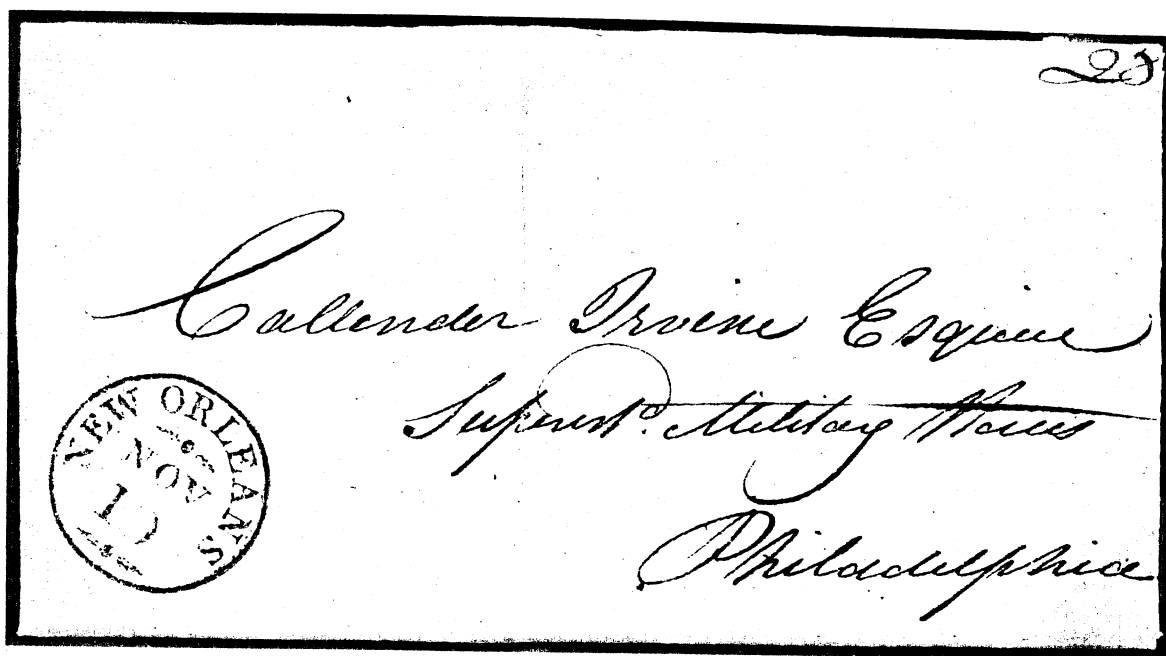 25
Callender Irvine Esquire
Superint^d. Military Stores
Philadelphia
NEW ORLEANS
NOV